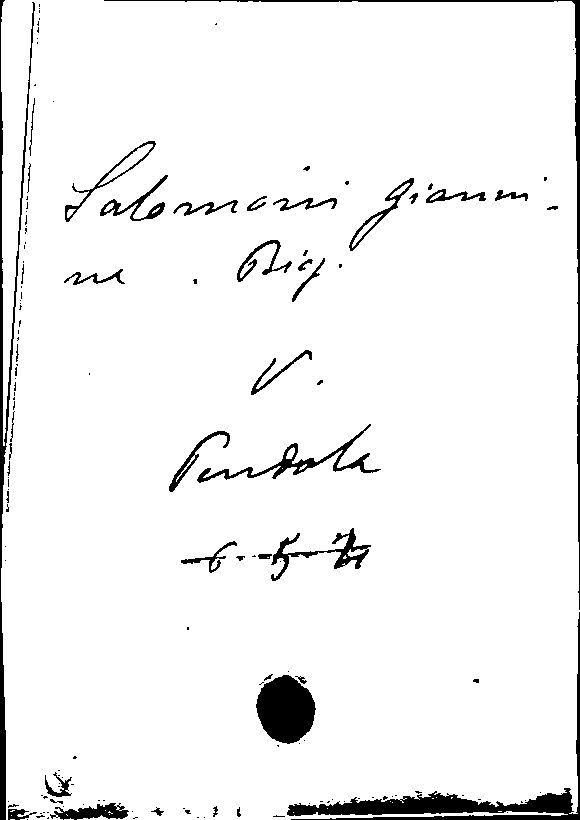 Salomoni Gianni-
na . Big.
V.
Pendola
6. 5